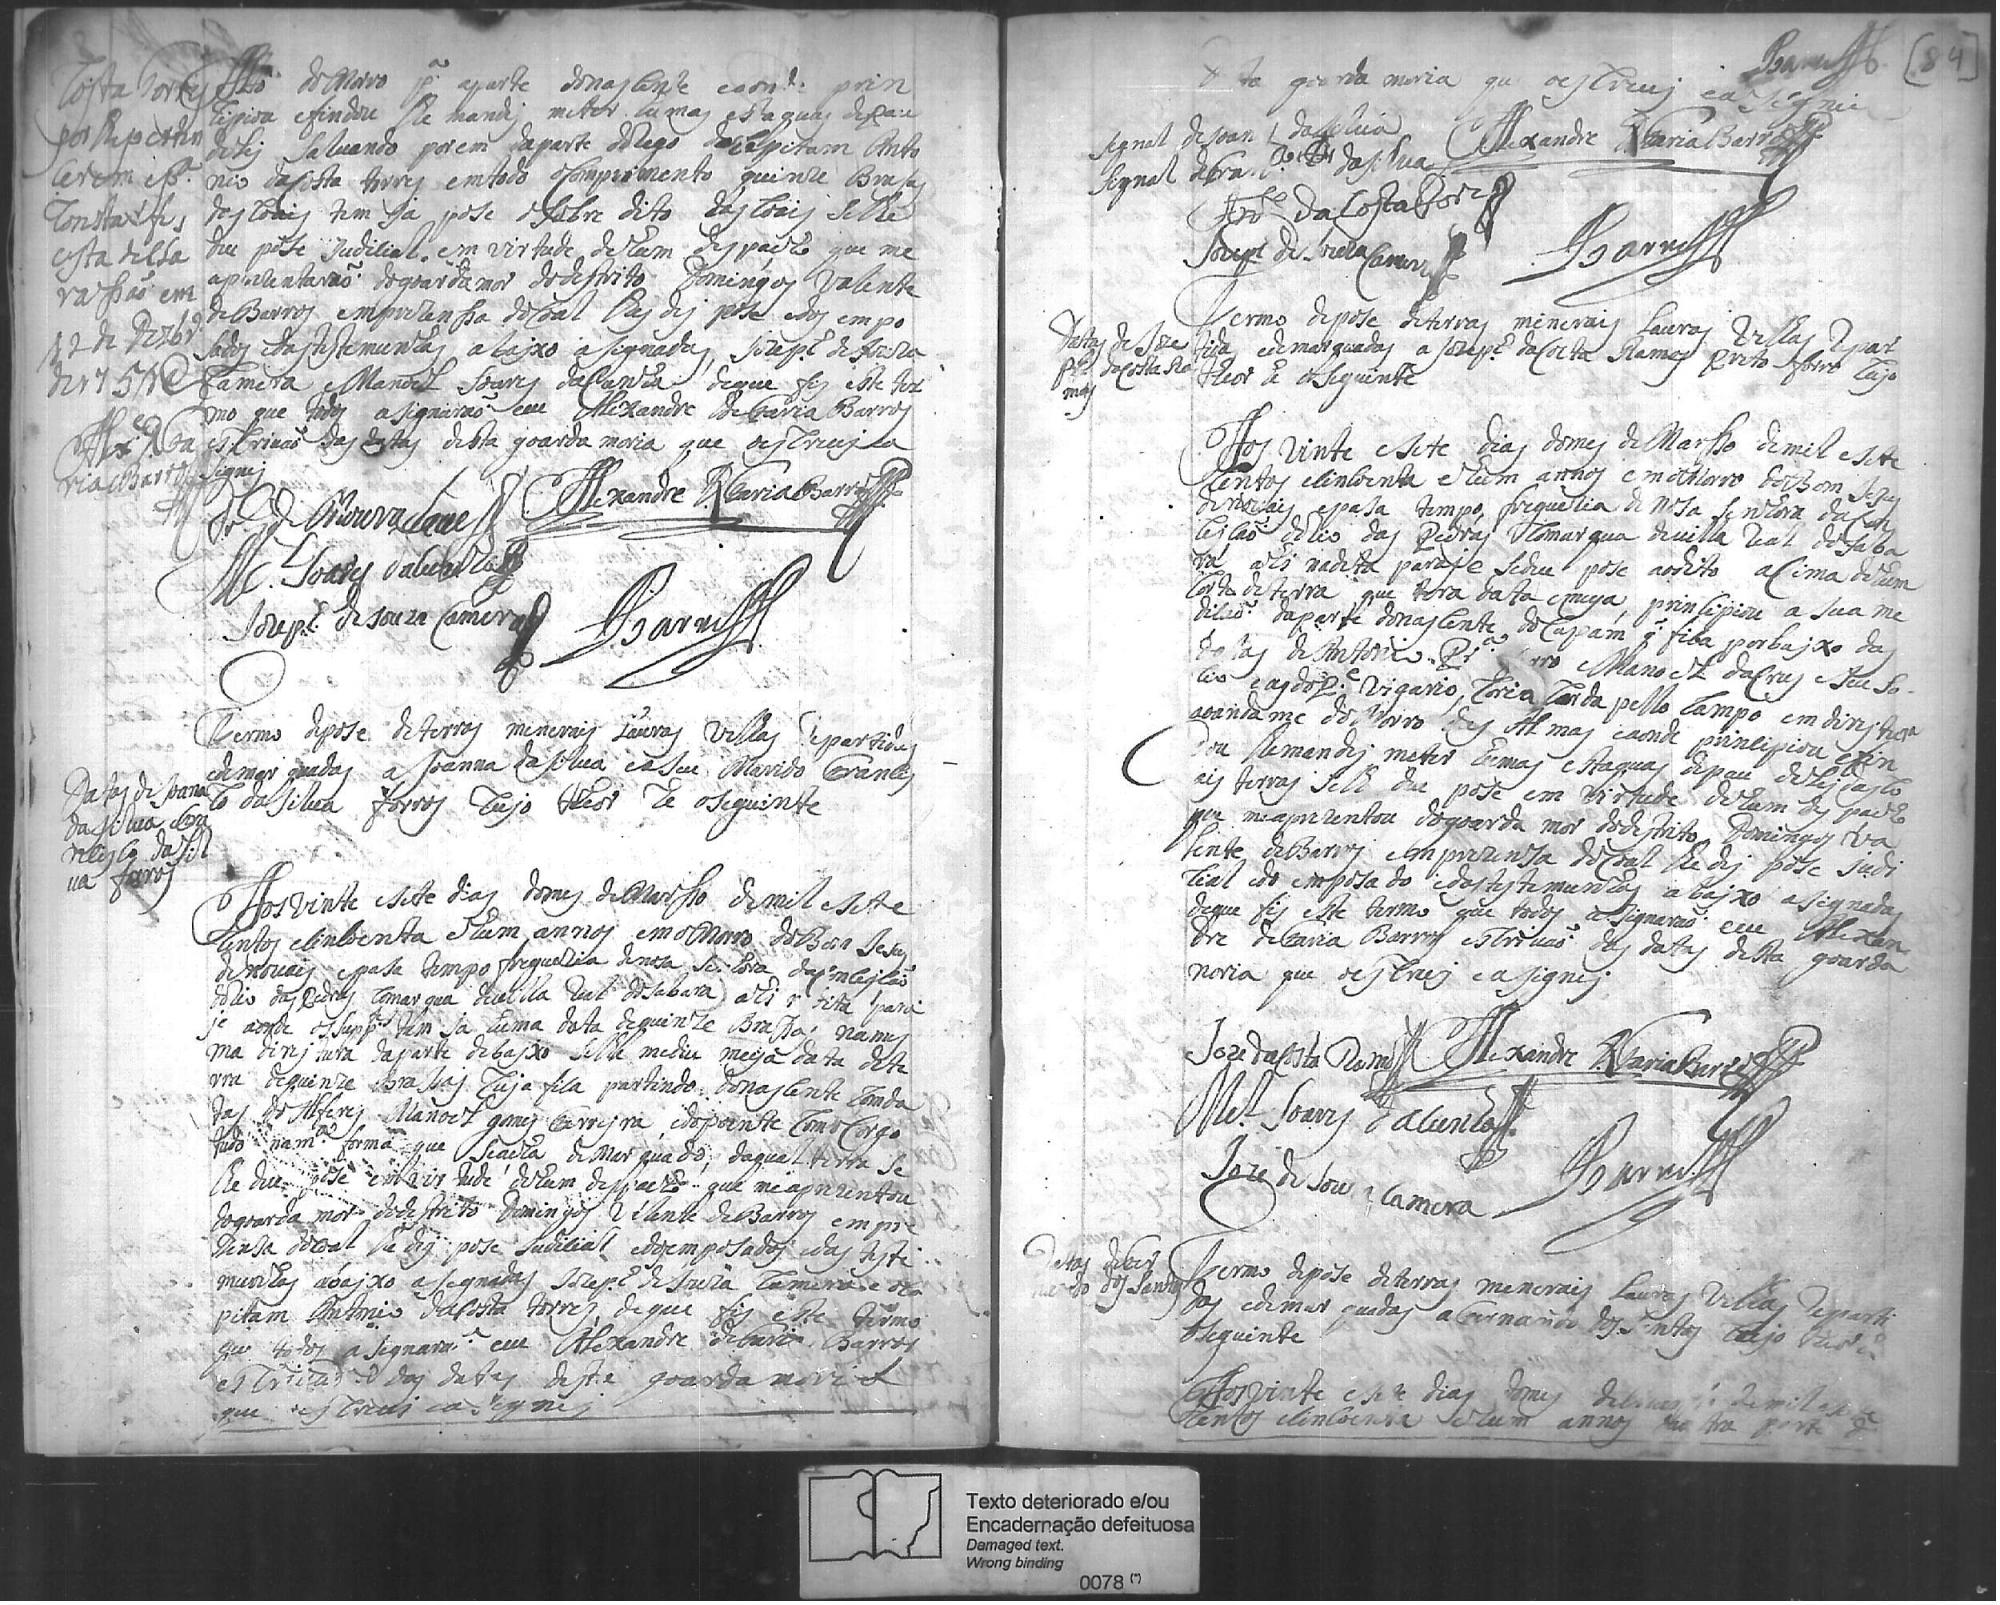 Costa Torres
por lhe perten
serem e pa.
Constar fis
esta decla
rassaõ em
12 de Dezbr.o
de 1751
Alx.e de Fa
ria Barros
do Morro p.a aparte donasente eaond.e prin
sipiou efindou lhe mandei meter humas estaquas depau
deley salvando porem daparte do rego do Capitam Anto
nio daCosta torres emtodo oComprimento quinze Brasas
dos Coais tem ja pose o sobre dito das Coais selhe
deu pose Judisial em virtude dehum despacho que me
aprezentaraõ doguardamor dodestrito Domingos Valente
deBarros emprezensa doCoal lhes dei pose edos empo
sados edastestemunhas abajxo asignadas, Jozeph de Souza
Camera eManoel Soares daCunha, deque fis este ter
mo que todos asignaraõ eeu Alexandre deFaria Barros
esCrivaõ das datas desta goarda moria que oesCrevi ea
signei
Alexandre de Faria Barros
M.el Soares daCunha
Jozeph de Souza Camera
Barros
Datas de Joana
da Silva eFra
ncisco da Sil
va forros
Termo depose deterras menerais Lavras Velhas Repartidas
edemarquadas a Joanna da Silva easeu Marido Francis
Co da Silva forros Cujo theor he oseguinte
Aos vinte esete dias domes deMarsso demil esete
Centos eSinCoenta ehum annos emoMorro doBom Jesus
denovais epasa tempo freguezia denosa Senhora daConseisaõ
doRio das Pedras Comarqua deVilla Real doSabara ahi n dita para
je aonde os supp.es tem ja huma data dequinze Brassas names
ma direitura daparte debajxo selhe mediu meija data dete
rra dequinze brassas Cuja fica partindo donasente Comda
das do Alferes Manoel gomes Ferreira edopoente Como Corgo
tudo nam.ma forma que seacha demarquado, daqual terra se
lhe deu pose emvirtude dehum despacho que meaprezentou
dogoarda mor dodestrito Domingos Valente deBarros empre
zensa doCoal lhe dei pose Judisial edosemposados edas teste
munhas abajxo asignadas Jozeph de Souza Camera eoCa
pitam Antonio daCosta torres, deque fis este termo
que todos asignaraõ eeu Alexandre deFaria Barros
esCrivaõ das datas desta goarda moria
que oesCrevi easignei
Barros [84]
desta goarda moria que oesCrevi easignei
Signal deJoana daSilva
Signal deFra.co daSilva
Alexandre de Faria Barros
Ant.o da Costa Torres
Jozeph de Souza Camera
Barros
Datas de Joze
ph daCosta Ra
mos
Termo depose deterras menerais Lavras Velhas Repar
tida edemarquadas a Jozeph daCosta Ramos Preto forro Cujo
theor he oseguinte
Aos Vinte esete dias domes deMarsso demil esete
Centos eSinCoenta ehum annos emoMorro doBom Jesus
denovais epasa tempo, freguezia deNosa Senhora daCon
seisaõ doRio das Pedras Comarqua devilla Real doSaba
rá ahi nadita paraje sedeu pose aodito aSima dehum
Corte deterra que tera data emeija, prinsipiou a sua me
disaõ daparte donasente doCapam q.e fica porbajxo das
datas deAntonio forro eManoel daCruz eseu So-
cio easdoR.do Vigario, Coria Corda pello Campo emdireitura
aoandame doMorro das Almas eaonde prinsipiou efin
dou lhemandei meter humas estaquas depau deley das Co
ais terras selhe deu pose em Virtude dehum despacho
que meaprezentou dogoarda mor dodestrito Domingos Va
lente deBarros emprezensa doCoal lhe dei pose Judi
sial edo emposado edastestemunhas abajxo asignadas
deque fis este termo que todos asignaraõ eeu Alexan
dre deFaria Barros esCrivaõ das datas desta goarda
moria que oesCrevi easignei
Joze daCosta Ramos
Alexandre de Faria Barros
M.el Soares daCunha
Joze de Souza Camera
Barros
Datas deFer
nando dos Santos
Termo depose deterras menerais Lavras Velhas Reparti
das edemarquadas aFernando dos Santos Cujo theor he
oseguinte
Aosvinte esete dias domes demil esete
Centos eSinCoenta ehum annos
Texto deteriorado e/ou
Encadernação defeituosa
Damaged text.
Wrong binding
0078 (*)